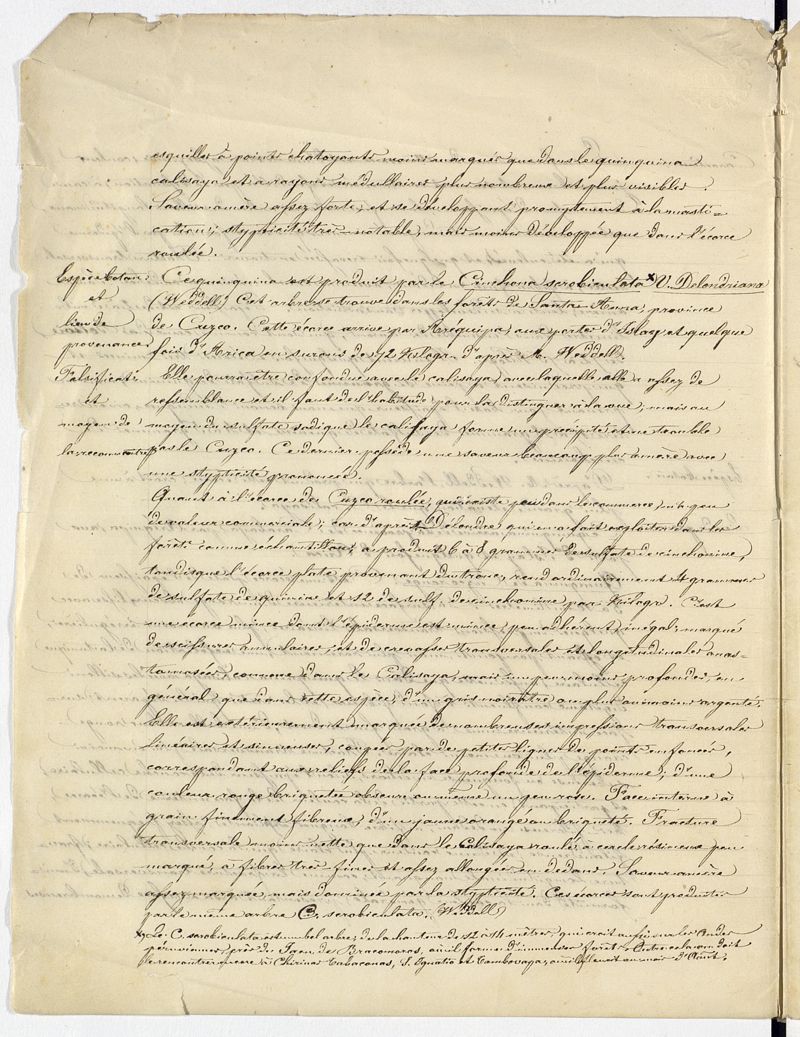 esquilles à points chatoyants moins marqués que dans le quinquina
calisaya et à rayons médullaires plus nombreux et plus visibles.
Saveur amère assez forte, et se développant promptement à la masti=
cation; stypticité très-notable, mais moins développée que dans l'écorce
roulée.
Espèce botan:
et
lieu de
provenance
Ce quinquina est produit par le Cinchona scrobiculata x V. Delondriana
(Weddell) Cet arbre se trouve dans les forêts de Santa-Anna, province
de Cuzco. Cette écorce arrive par Aréquipa, aux portes d'Islay et quelque
fois d'Arica en surons de 72 Kilogr. d'après M. Weddell.
Falsificat:
et
moyen de
la reconnaître
Elle pourra être confondue avec le calisaya, avec laquelle elle a assez de
ressemblance et il faut de l'habitude pour la distinguer à la vue, mais au
moyen du sulfate sodique le calisaya forme un précipité et ne trouble
pas le Cuzco. Ce dernier possède une saveur beaucoup plus amère avec
une stypticité prononcée.
Quant à l'écorce de Cuzco roulée, qui existe peu dans le commerce, n'a peu
de valeur commerciale; car d'après Délondre, qui en a fait exploiter dans les
forêts comme échantillons, a produit 6 à 8 grammes de sulfate de cinchonine,
tandis que l'écorce plate provenant du tronc, rend ordinairement 4 grammes
de sulfate de quinine et 12 de sulf. de cinchonine par Kilogr. C'est
une écorce mince dont l'épiderme est mince, peu adhérent, inégal, marqué
de scissures annulaires, et de crevasses transversales et longitudinales anas=
tomosées, comme dans le Calisaya, mais un peu moins profondes, en
général, que dans cette espèce, d'un gris noirâtre ou plus ou moins argenté.
Elle est extérieurement marquée de nombreuses impressions transversales
linéaires et sinueuses, coupées par de petites lignes de points enfoncés,
correspondant aux reliefs de la face profonde de l'épiderme; d'une
couleur rouge briquetée obscur ou même un peu rose. Face interne à
grain finement fibreux, d'un jaune orangé ou briqueté. Fracture
transversale moins nette que dans le Calisaya roulé, à cercle résineux peu
marqué, à fibres très-fines et assez allongées en dedans. Saveur amère
assez marquée, mais dominée par la stypticité. Ces écorces sont produites
par le même arbre C. scrobiculata. Weddell)
x Le C. scrobiculata est un bel arbre, de la hauteur de 12 à 14 mètres, qui croît aussi sur les Andes
péruviennes, près de Jaen de Bracomoros, où il forme d'immenses forêts. Outre cela on doit
le rencontrer encore à Chirinos Tabaconas, S. Ignatio et Tambovapa, où il fleurit au mois d'Août.